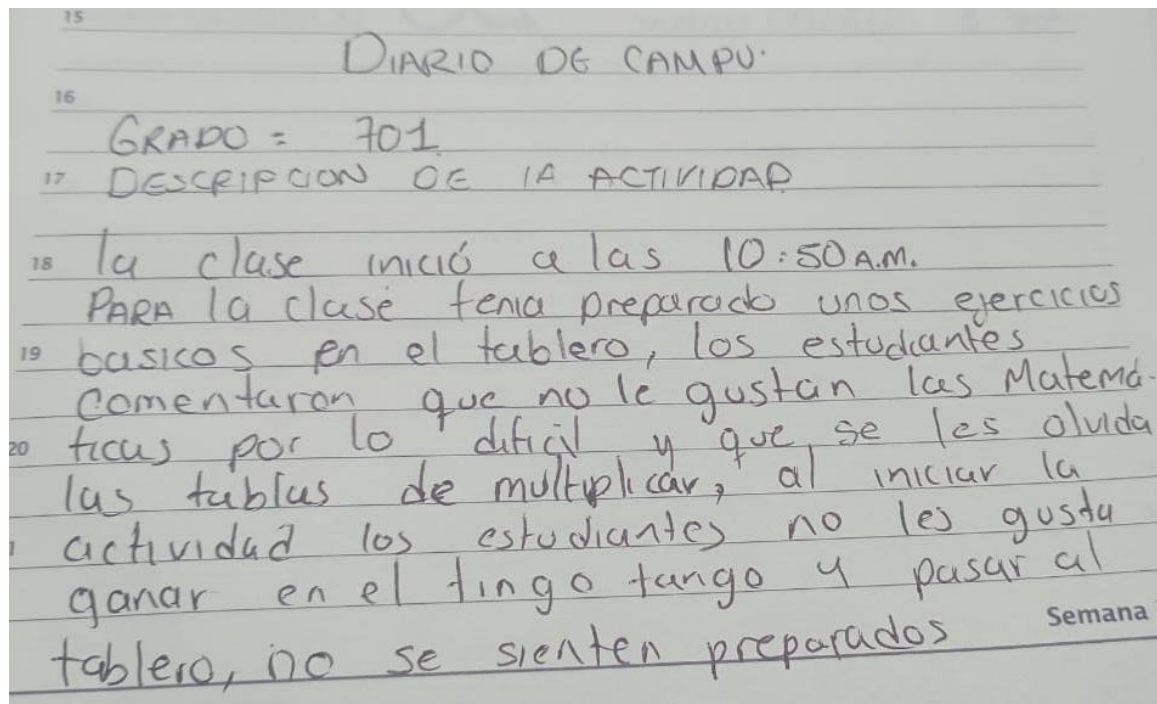 15
DIARIO DE CAMPO.
16
GRADO = 701
17 DESCRIPCION DE lA ACTIVIDAD
18 la clase inició a las 10:50 A.M.
PARA la clase tenia preparado unos ejercicios
19 basicos en el tablero, los estudiantes
comentaron que no le gustan las Matemá-
20 ticas por lo dificil y que se les olvida
las tablas de multiplicar, al iniciar la
actividad los estudiantes no les gusta
ganar en el tingo tango y pasar al
Semana
tablero, no se sienten preparados